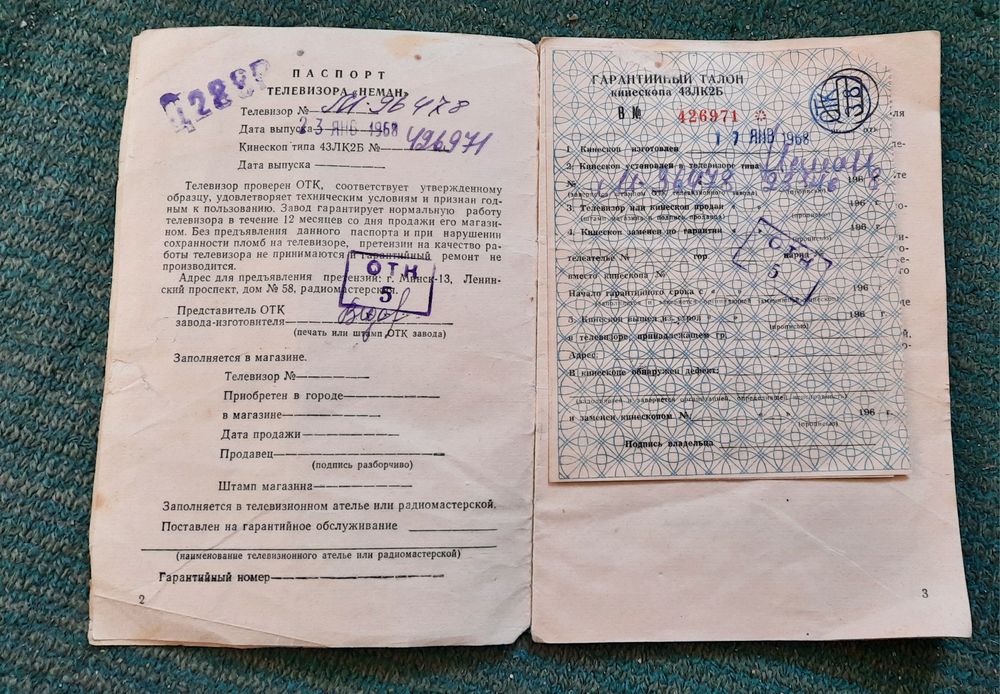 ПАСПОРТ
ТЕЛЕВИЗОРА «НЕМАН»
Телевизор № М-96478
Дата выпуска 23 ЯНВ 1968
Кинескоп типа 43ЛК2Б № 426971
Дата выпуска
Телевизор проверен ОТК, соответствует утвержденному
образцу, удовлетворяет техническим условиям и признан год-
ным к пользованию. Завод гарантирует нормальную работу
телевизора в течение 12 месяцев со дня продажи его магази-
ном. Без предъявления данного паспорта и при нарушении
сохранности пломб на телевизоре, претензии на качество ра-
боты телевизора не принимаются и гарантийный ремонт не
производится.
Адрес для предъявления претензии: г. Минск-13, Ленин-
ский проспект, дом № 58, радиомастерская.
ОТК
5
Представитель ОТК
завода-изготовителя
(печать или штамп ОТК завода)
Заполняется в магазине.
Телевизор №
Приобретен в городе
в магазине
Дата продажи
Продавец
(подпись разборчиво)
Штамп магазина
Заполняется в телевизионном ателье или радиомастерской.
Поставлен на гарантийное обслуживание
(наименование телевизионного ателье или радиомастерской)
Гарантийный номер
2
ГАРАНТИЙНЫЙ ТАЛОН
кинескопа 43ЛК2Б
В № 426971
17 ЯНВ 1968
1. Кинескоп изготовлен
2. Кинескоп установлен в телевизоре типа Неман
№ 196 8
3. Телевизор или кинескоп продан « » 196 г.
(штамп магазина и подпись продавца) (прописью)
4. Кинескоп заменен до гарантии « » 196 г.
(прописью)
телеателье № гор. наряд №
вместо кинескопа №
ОТК
5
Начало гарантийного срока с « » 196 г.
5. Кинескоп вышел из строя « » 196 г.
(прописью)
в телевизоре принадлежащем гр.
Адрес
В кинескопе обнаружен дефект:
и заменен кинескопом №. « » 196 г.
(прописью)
Подпись владельца
3